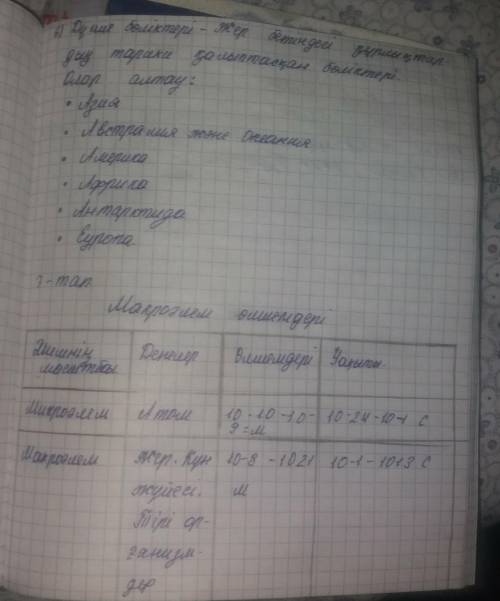 б) Дүние бөліктері - Жер бетіндегі құрлықтар
дың тарихи қалыптасқан бөліктері.
Олар алтау:
• Азия
• Австралия және Океания
• Америка
• Африка
• Антарктида
• Еуропа
3-тап
Макроәлем өлшемдері
Әлемнің масштабы Денелер Өлшемдері Уақыты
Микроәлем Атом 10-10-10-9=м 10-24-10-1 с
Макроәлем Жер. Күн 10-8-1021 10-1-1013 с
жүйесі. м
Тірі ор-
ганизм-
дер